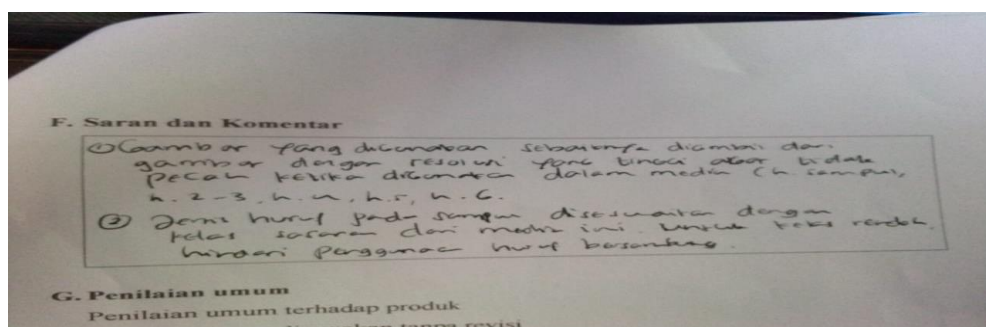 F. Saran dan Komentar
① Gambar yang digunakan sebaiknya diambil dari
gambar dengan resolusi yang tinggi agar tidak
pecah ketika digunakan dalam media (h. sampul,
h. 2-3, h. 4, h. 5, h. 6.
② Jenis huruf pada sampul disesuaikan dengan
kelas sasaran dari media ini. Untuk kelas rendah.
hindari penggunaan huruf
G. Penilaian umum
Penilaian umum terhadap produk
tanpa revisi